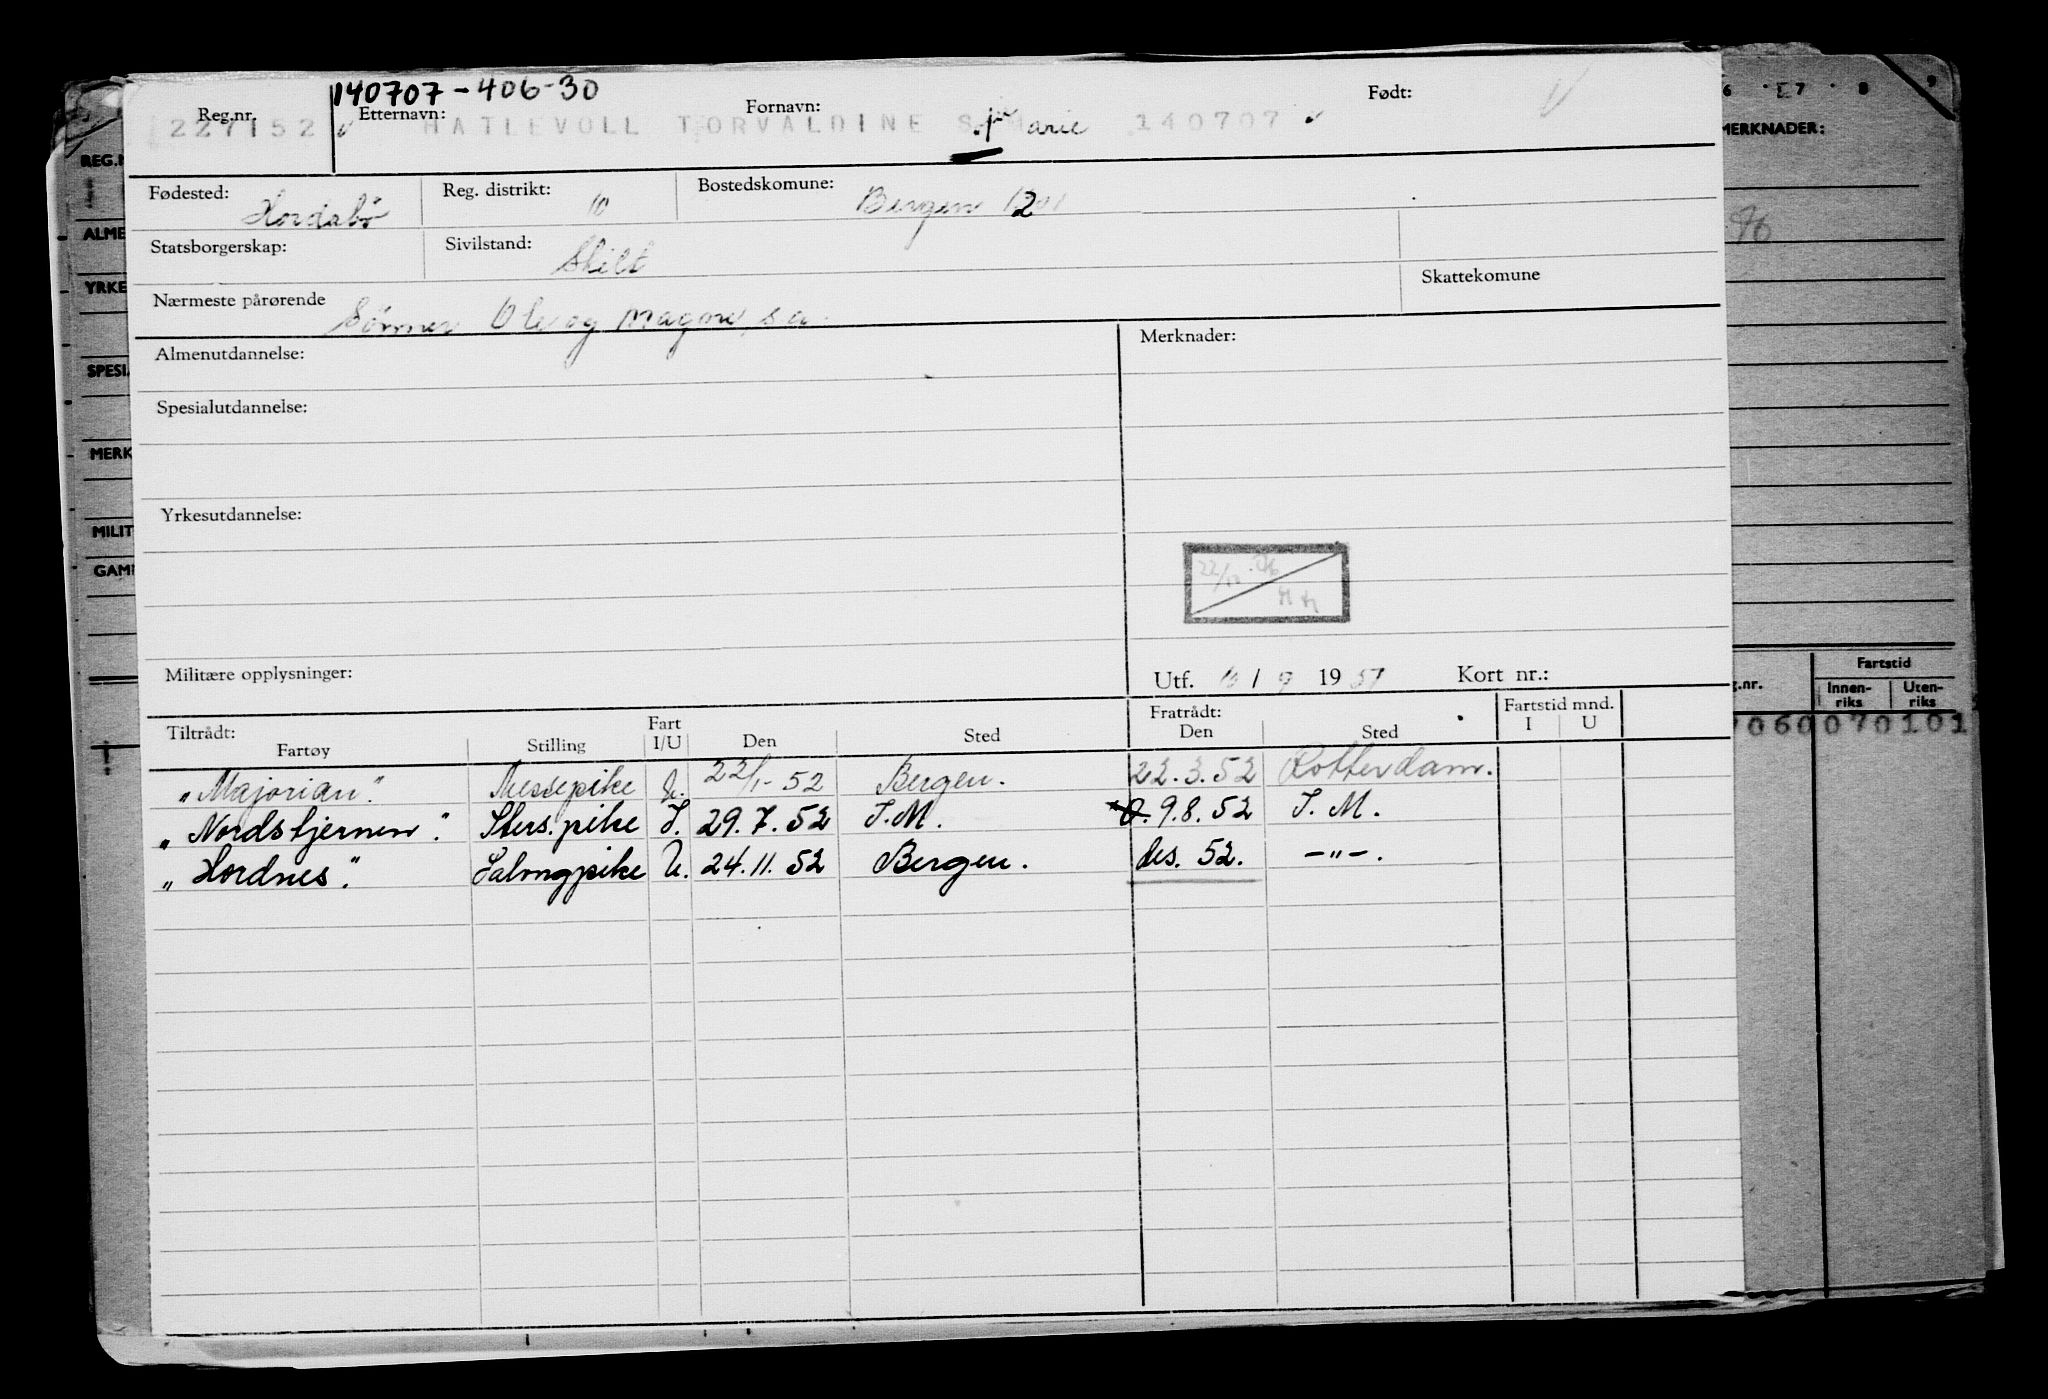 140707-406-30
Reg.nr. Etternavn: Fornavn: Født:
227152 HATLEVOLL TORVALDINE S Marie 140707
Fødested: Hordabø Reg. distrikt: 10 Bostedskomune: Bergen
Statsborgerskap: Sivilstand: Skilt
Skattekomune
Nærmeste pårørende Sønner Ole og Magne, s.a.
Almenutdannelse: Merknader:
Spesialutdannelse:
Yrkesutdannelse:
22/12
Militære opplysninger: Utf. 10 / 9 19 51 Kort nr.:
Tiltrådt: Fart Fratrådt: Fartstid mnd.
Fartøy Stilling I/U Den Sted Den Sted I U
"Majorian". Messepike U. 22/1-52 Bergen. 22.3.52 Rotterdam.
"Nordstjernen". Sters.pike I. 29.7.52 I.M. 9.8.52 I.M.
"Hordnes". Salongpike U. 24.11.52 Bergen. des. 52. -"-.
REG.N
ALME
YRKE
SPESIA
MERK
MILIT
GAM
6 7 8 9
MERKNADER:
g.nr. Fartstid
Innen-riks Uten-riks
7060070101